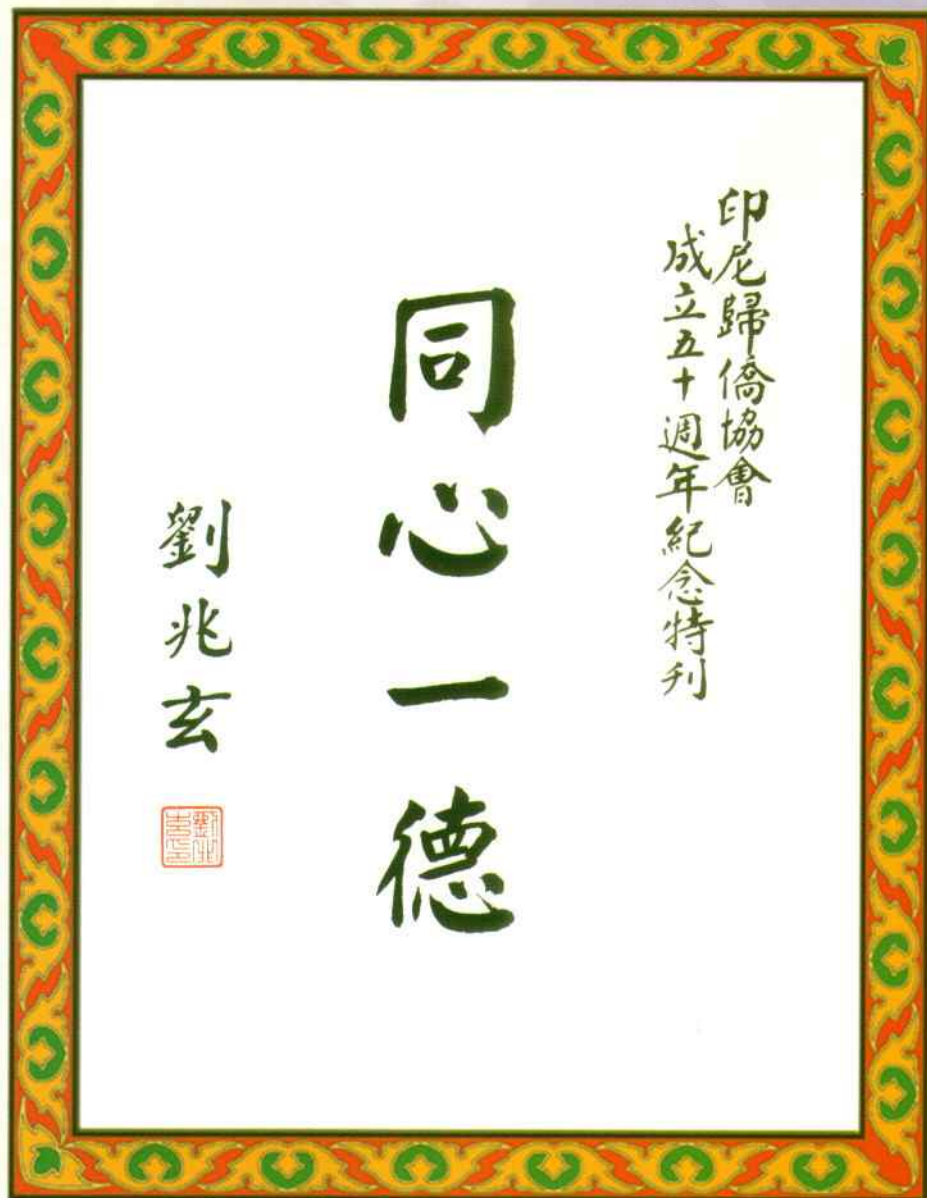 印尼歸僑協會
成立五十週年紀念特刊
同心一德
劉兆玄